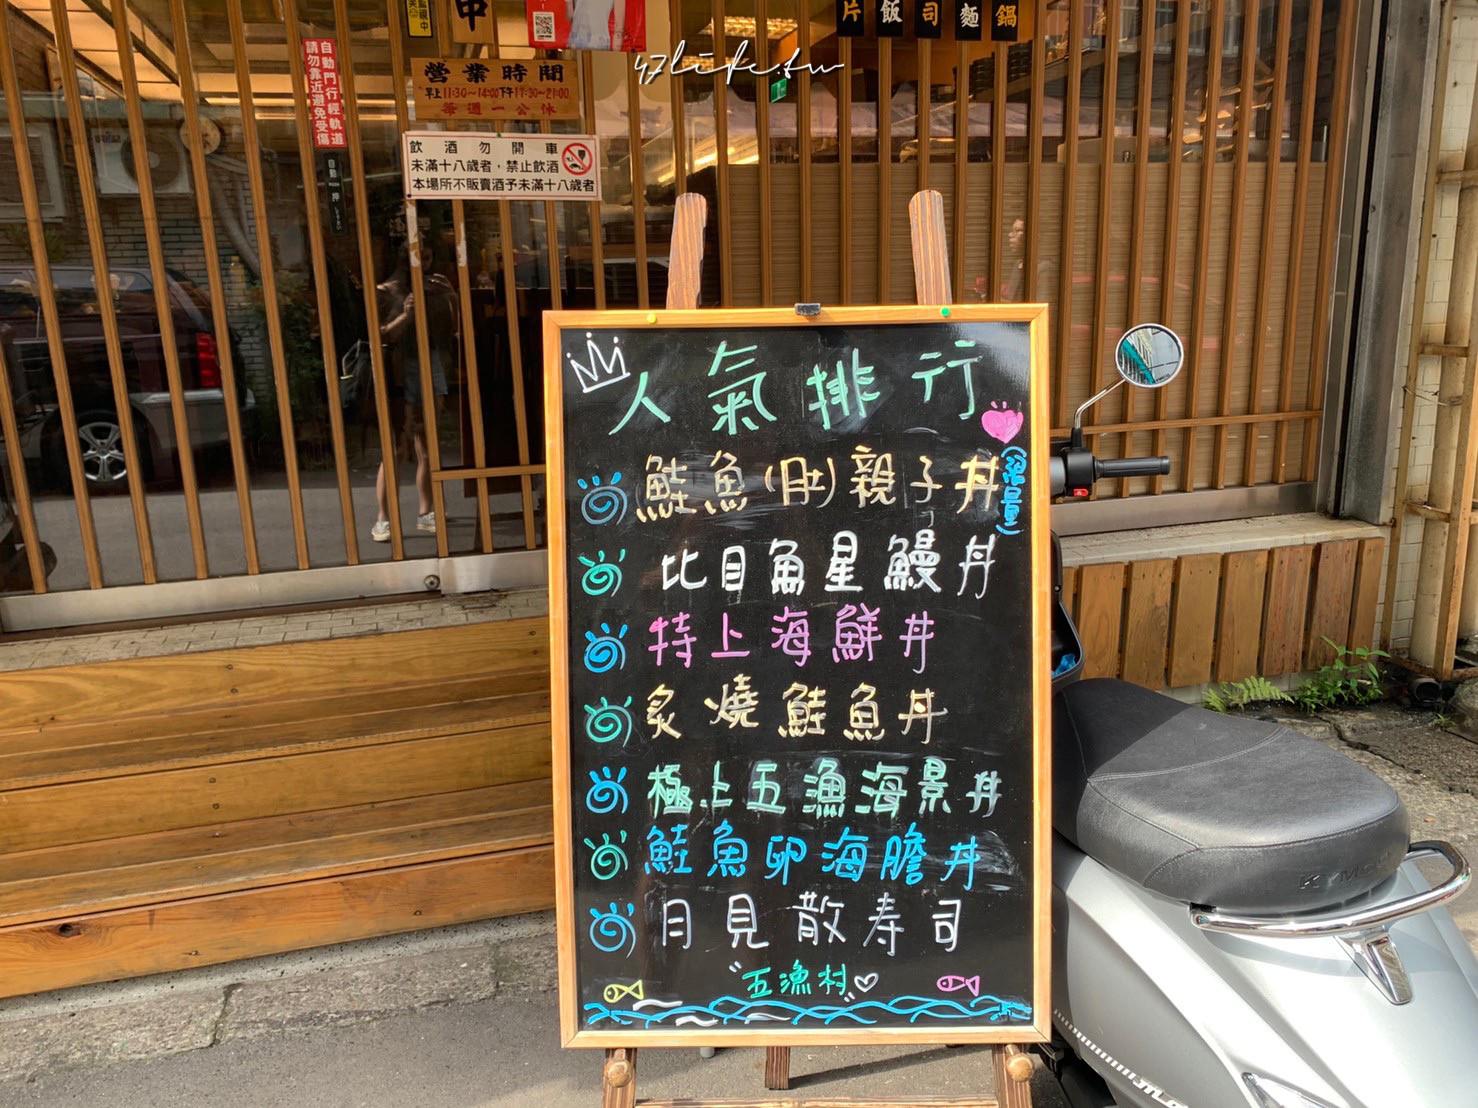 片 飯 司 麵 鍋
47like.tw
營業時間
早上11:30~14:00下午17:30~21:00
每週一公休
自動門行經軌道
請勿靠近避免受傷
飲酒勿開車
未滿十八歲者，禁止飲酒
本場所不販賣酒予未滿十八歲者
人氣排行
鮭魚(肚)親子丼(限量)
比目魚星鰻丼
特上海鮮丼
炙燒鮭魚丼
極上五漁海景丼
鮭魚卵海膽丼
月見散寿司
"五漁村"
KYMCO